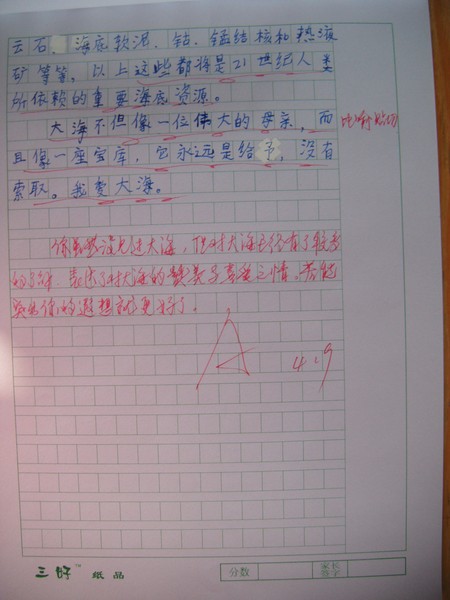 云石、海底软泥、钴、锰结核和热液
矿等等。以上这些都将是21世纪人类
所依赖的重要海底资源。
大海不但像一位伟大的母亲，而
比喻贴切
且像一座宝库，它永远是给予，没有
索取。我爱大海。
你虽然没见过大海，但对大海已经有了较多
的了解，表达了对大海的赞美与喜爱之情。若能
写出你的遐想就更好了。
A
4.9
三好™ 纸品
分数
家长
签字